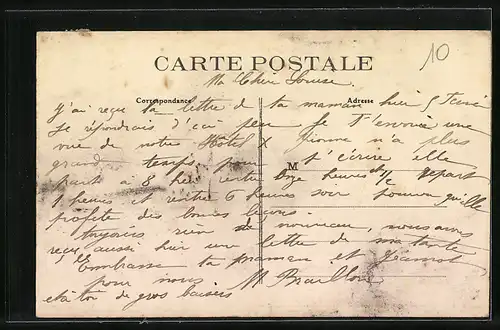 10
CARTE POSTALE
Ma Chère Louise
Correspondance
Adresse
J'ai reçu la lettre de ta maman hier
Je répondrais d'ici peu Je T'envoie une
vue de notre Hotel X n'a plus
grand temps pour t'écrire elle
M
part à 8 heures rentre onze heures 1/2 repart
1 heures et rentre 6 heures soir pourvu qu'elle
profite des bonnes leçons.
toujours rien de nouveau, nous avons
reçu aussi hier une lettre de ma tante
Embrasse ta maman et
pour nous.
et à toi de gros baisers